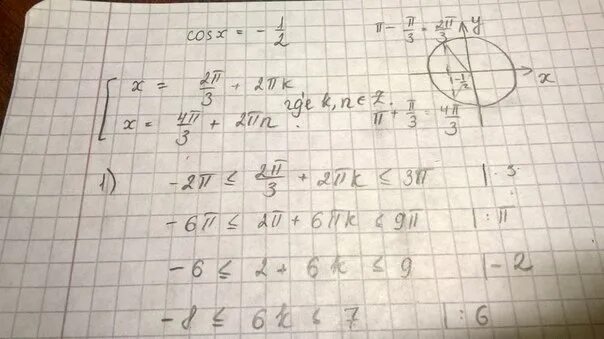 cosx = - 1/2
π - π/3 = 2π/3
y
x
-1/2
π + π/3 = 4π/3
x = 2π/3 + 2πk
где k, n ∈ Z.
x = 4π/3 + 2πn
1) -2π ≤ 2π/3 + 2πk ≤ 3π | · 3
-6π ≤ 2π + 6πk ≤ 9π | : π
-6 ≤ 2 + 6k ≤ 9 | - 2
-8 ≤ 6k ≤ 7 | : 6